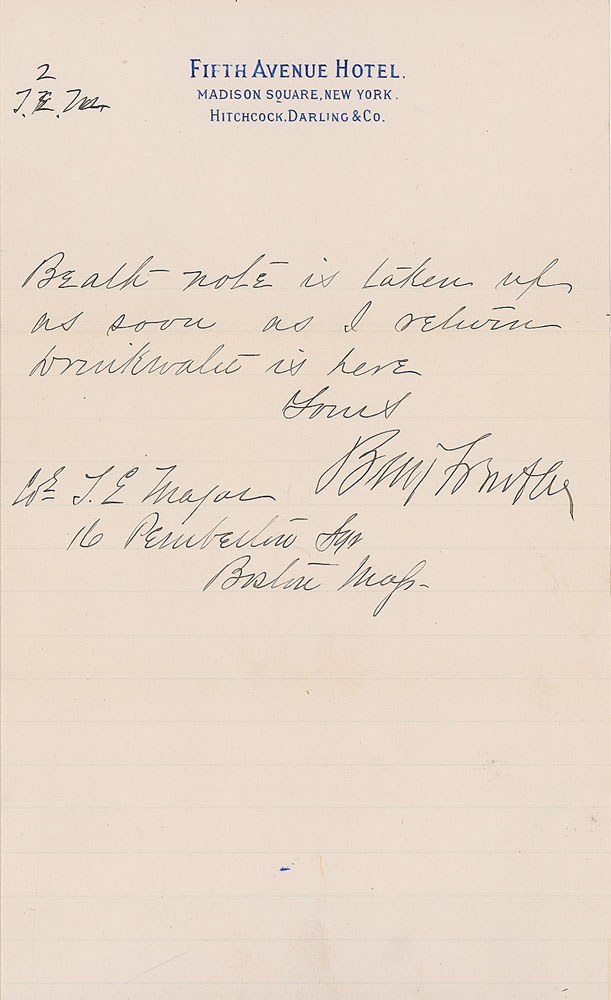 2
T. E. M.
FIFTH AVENUE HOTEL.
MADISON SQUARE, NEW YORK.
HITCHCOCK, DARLING & CO.
Beath note is taken up
as soon as I return
Drinkwater is here
Yours
Benj F Butler
Col T. E Major
16 Pemberton Sqr
Boston Mass-